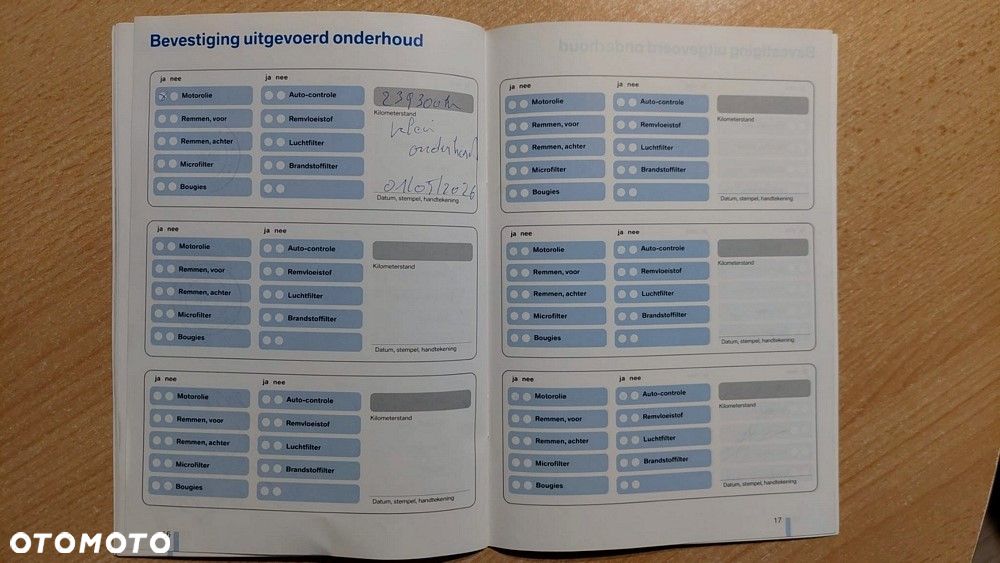 Bevestiging uitgevoerd onderhoud
ja nee
ja nee
Motorolie
Remmen, voor
Remmen, achter
Microfilter
Bougies
Auto-controle
Remvloeistof
Luchtfilter
Brandstoffilter
239300km
Kilometerstand
klein
onderhoud
Datum, stempel, handtekening
ja nee
ja nee
Motorolie
Remmen, voor
Remmen, achter
Microfilter
Bougies
Auto-controle
Remvloeistof
Luchtfilter
Brandstoffilter
Kilometerstand
Datum, stempel, handtekening
ja nee
ja nee
Motorolie
Remmen, voor
Remmen, achter
Microfilter
Bougies
Auto-controle
Remvloeistof
Luchtfilter
Brandstoffilter
Kilometerstand
Datum, stempel, handtekening
ja nee
ja nee
Motorolie
Remmen, voor
Remmen, achter
Microfilter
Bougies
Auto-controle
Remvloeistof
Luchtfilter
Brandstoffilter
Kilometerstand
Datum, stempel, handtekening
ja nee
ja nee
Motorolie
Remmen, voor
Remmen, achter
Microfilter
Bougies
Auto-controle
Remvloeistof
Luchtfilter
Brandstoffilter
Kilometerstand
Datum, stempel, handtekening
ja nee
ja nee
Motorolie
Remmen, voor
Remmen, achter
Microfilter
Bougies
Auto-controle
Remvloeistof
Luchtfilter
Brandstoffilter
Kilometerstand
Datum, stempel, handtekening
17
OTOMOTO